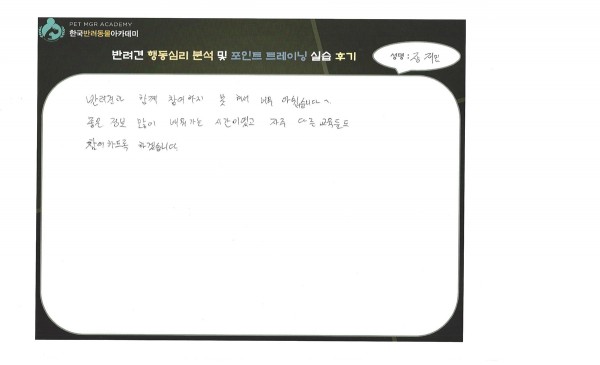 PET MGR ACADEMY
한국반려동물아카데미
반려견 행동심리 분석 및 포인트 트레이닝 실습 후기
성명 :
반려견과 함께 참여하지 못 해서 너무 아쉽습니다ㅠ
좋은 정보 많이 배워가는 시간이였고 자주 다른 교육들도
참여하도록 하겠습니다